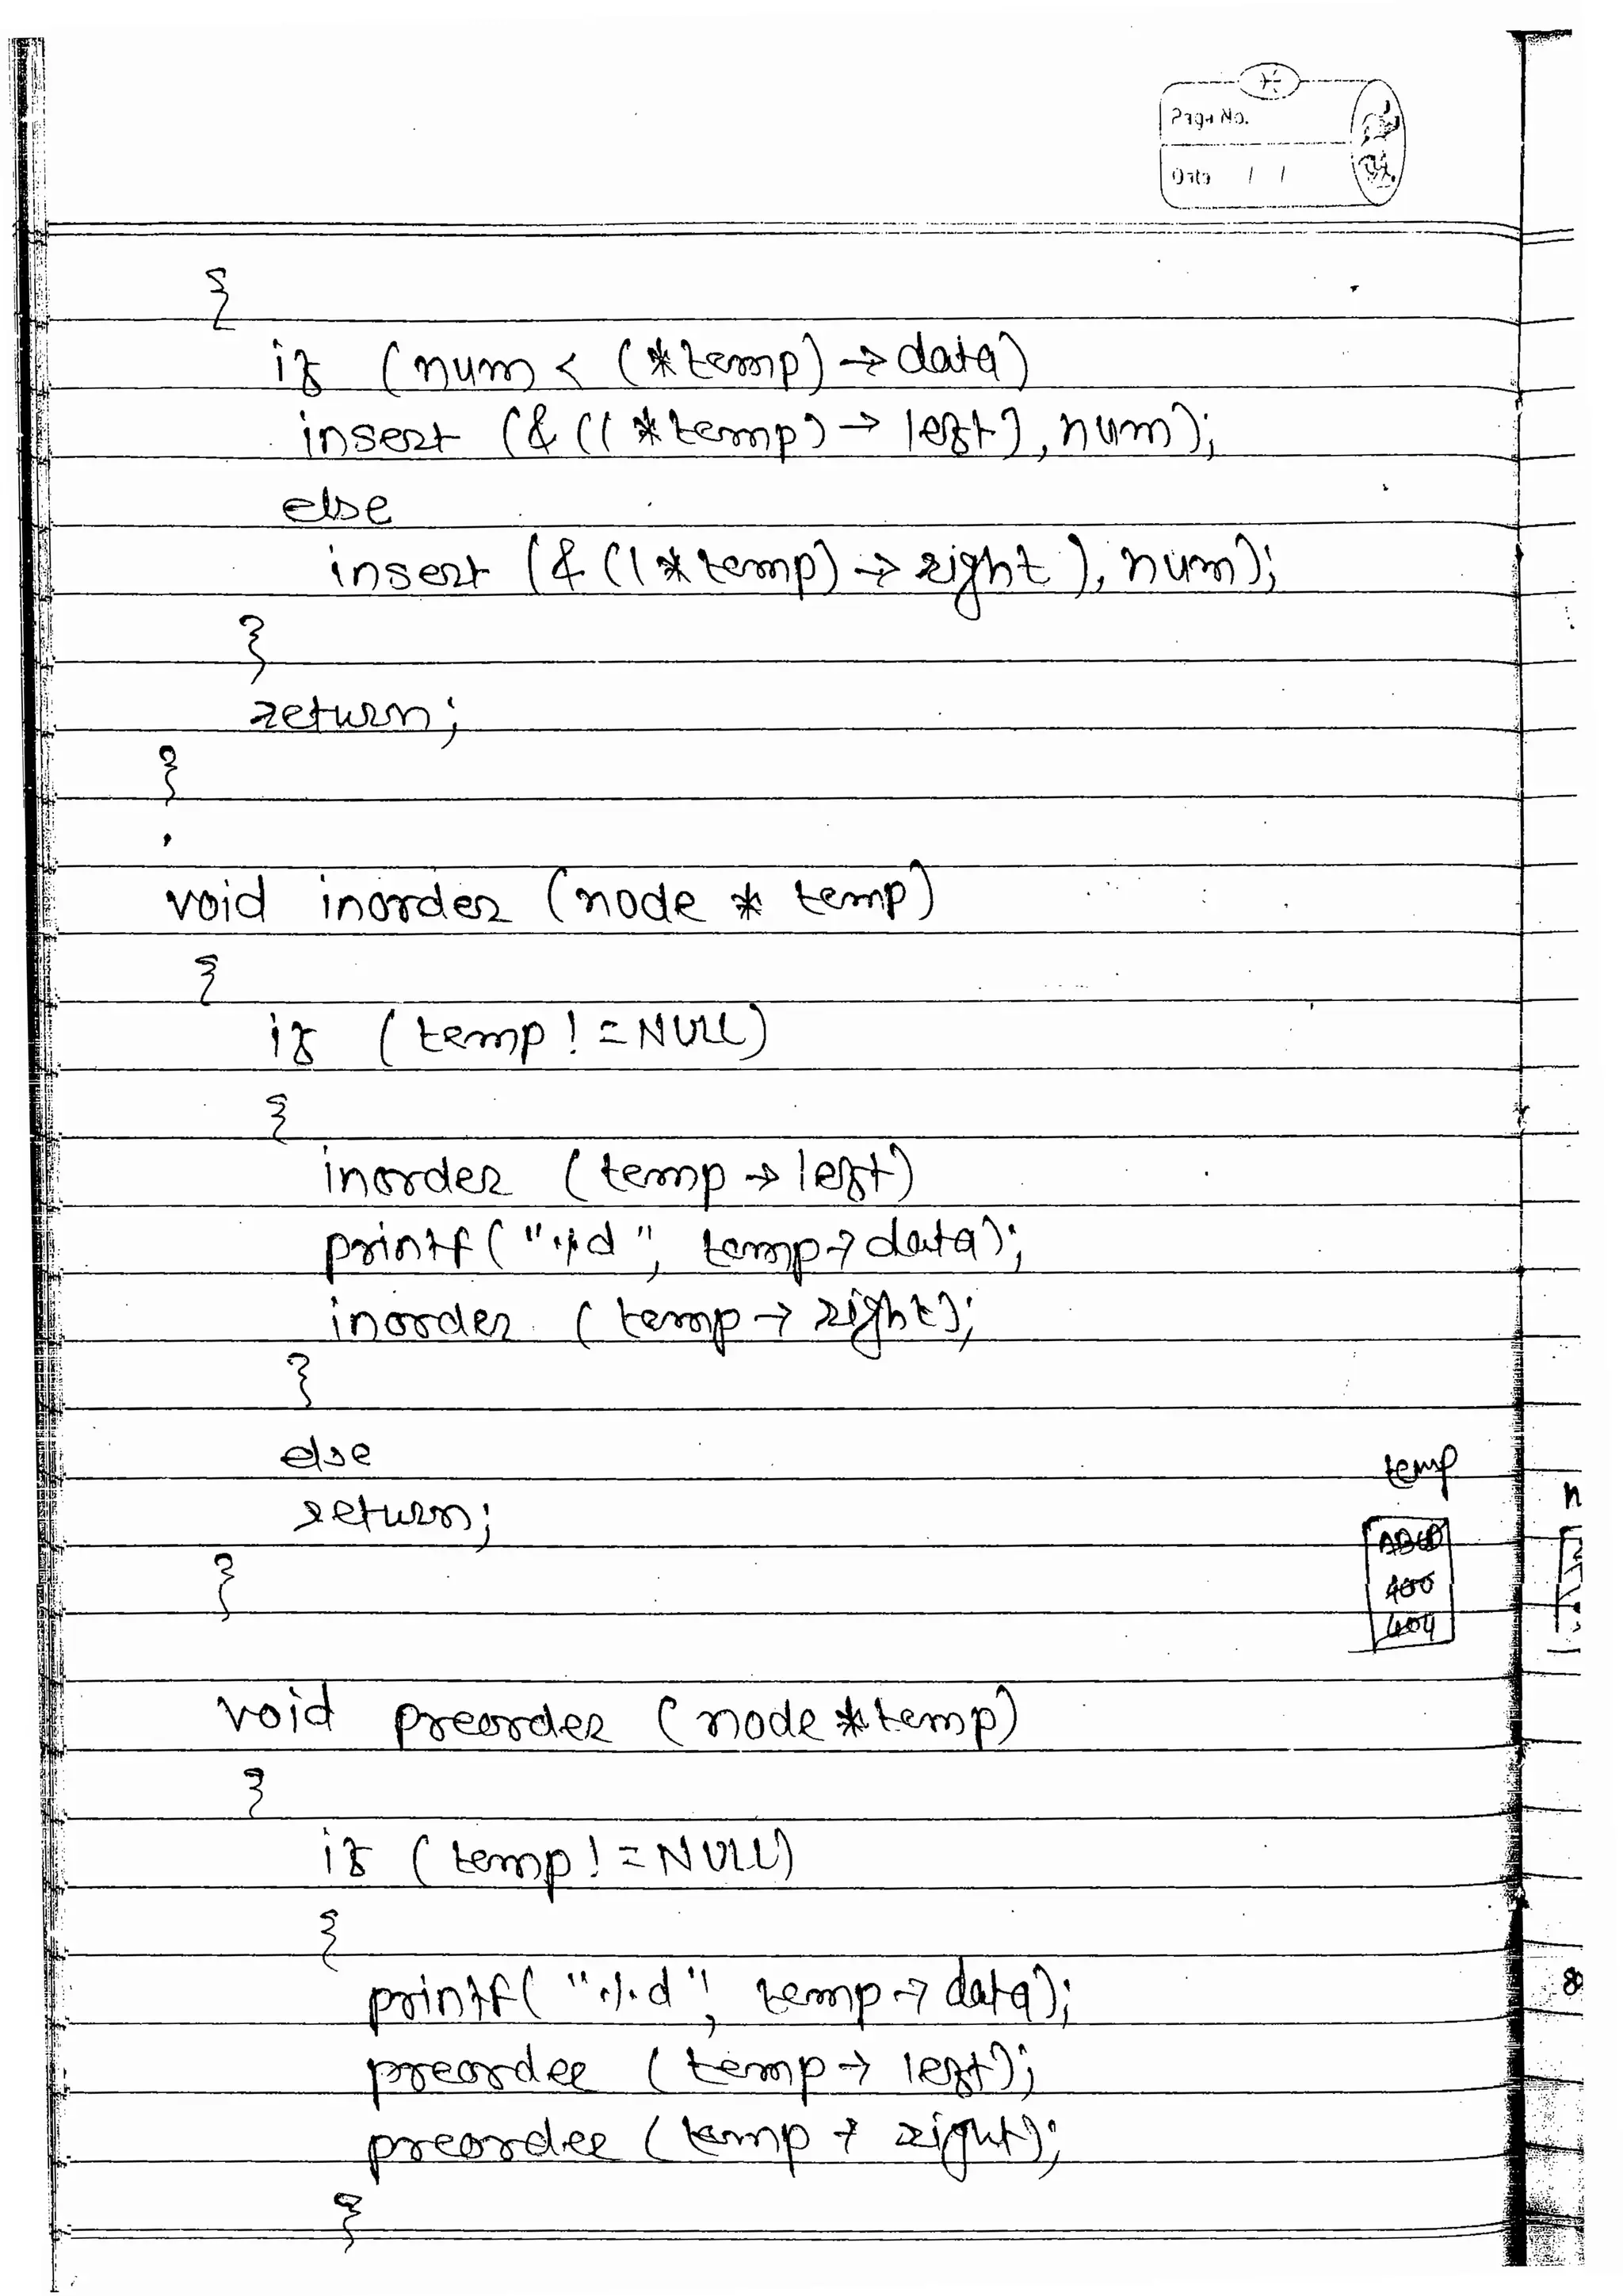 Page No.
Date / /
{
if (num < (*temp) → data)
insert (& ((*temp) → left), num);
else
insert (& ((*temp) → right), num);
}
return;
}
void inorder (node * temp)
{
if (temp != NULL)
{
inorder (temp → left)
printf("%d", temp → data);
inorder (temp → right);
}
else
return;
}
temp
ABCD
400
404
void preorder (node *temp)
{
if (temp != NULL)
{
printf("%d", temp → data);
preorder (temp → left);
preorder (temp → right);
}